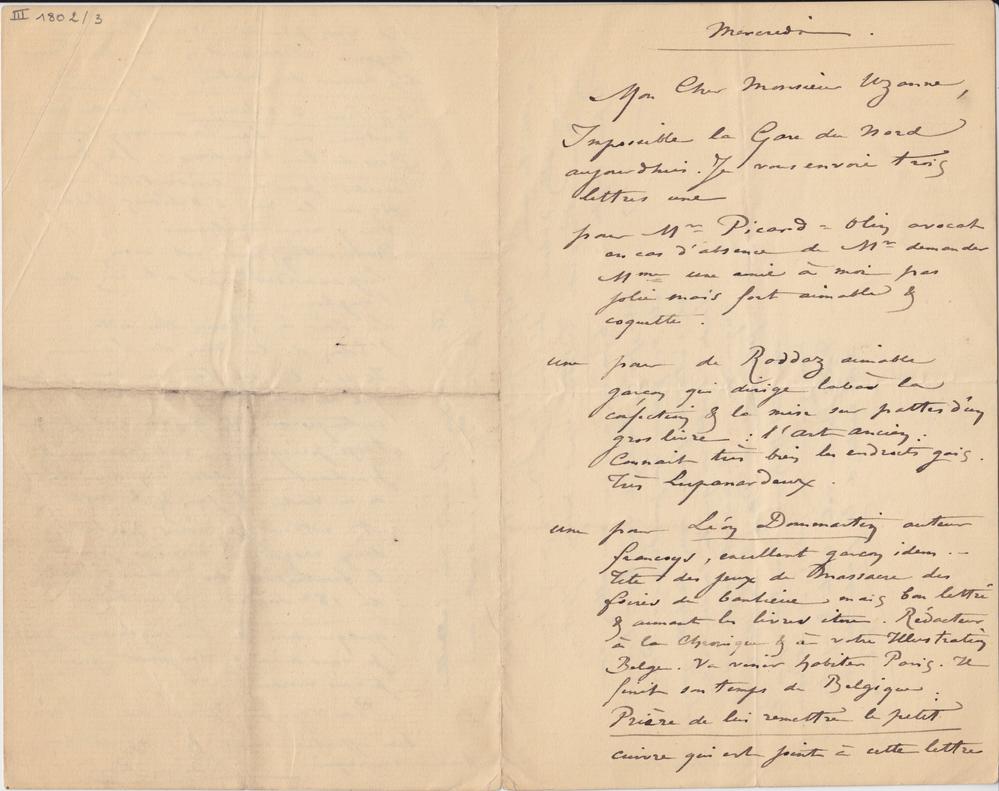 III 1802/3
Mercredi.
Mon Cher Monsieur Uzanne,
Impossible la Gare du Nord
aujourdhui. Je vous envoie trois
lettres une
pour Mr Picard = Olin avocat
en cas d'absence de Mr demander
Mme une amie à moi pas
jolie mais fort aimable &
coquette.
une pour de Roddaz aimable
garçon qui dirige labas la
confection & la mise sur pattes d'un
gros livre : l'art ancien.
Connait très bien les endroits gais.
Très Lupanardeux.
une pour Léon Dommartin auteur
françoys, excellent garçon idem. -
Tête des jeux de Massacre des
foires de banlieue mais bon lettré
& aimant les livres itou. Rédacteur
à la Chronique & à votre Illustration
Belge. Va venir habiter Paris. Il
finit son temps de Belgique :
Prière de lui remettre le petit
cuivre qui est joint à cette lettre